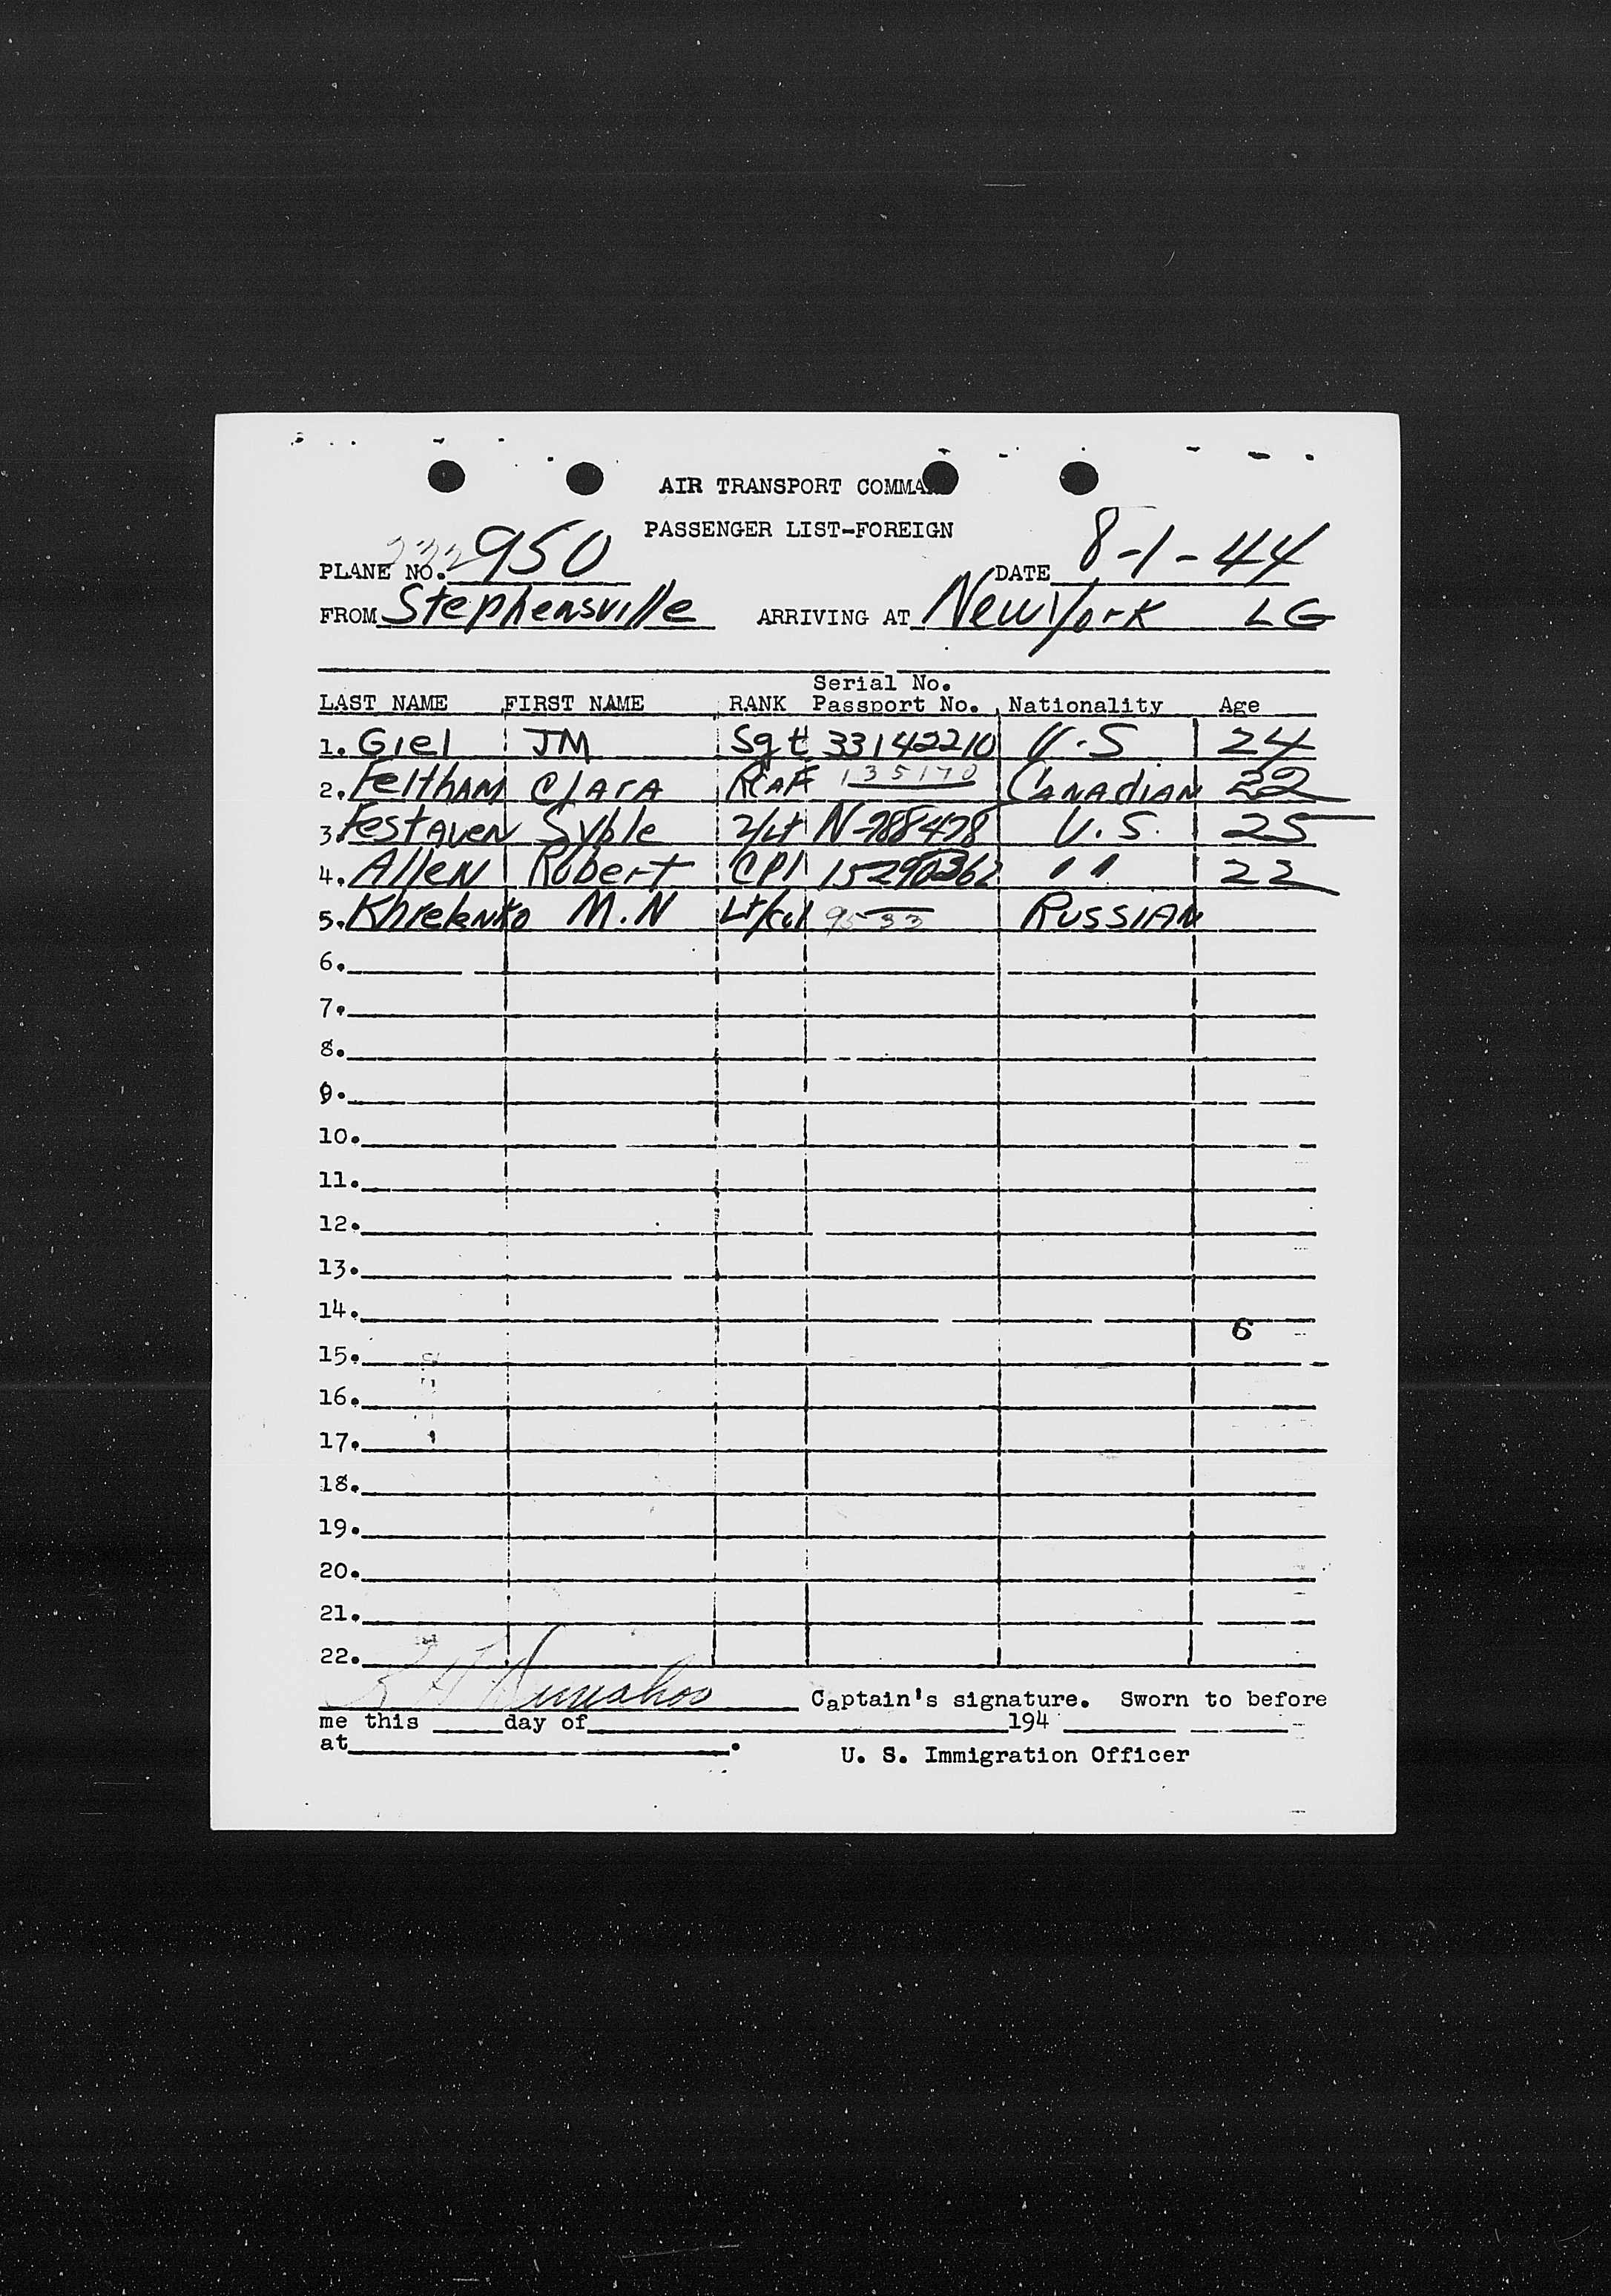 AIR TRANSPORT COMMAND
PASSENGER LIST-FOREIGN
PLANE NO. 232950 DATE 8-1-44
FROM Stephensville ARRIVING AT New York LG
Serial No.
LAST NAME FIRST NAME RANK Passport No. Nationality Age
1. Giel JM Sgt 33142210 U.S 24
2. Feltham Clara RCAF 135170 Canadian 22
3. Festaven Syble 2/Lt N-788478 U.S. 25
4. Allen Robert CPl 15290362 " " 22
5. M.N Lt/Col 9533 Russian
6.
7.
8.
9.
10.
11.
12.
13.
14.
6
15.
16.
17.
18.
19.
20.
21.
22.
Captain's signature. Sworn to before
me this day of 194
at .
U. S. Immigration Officer